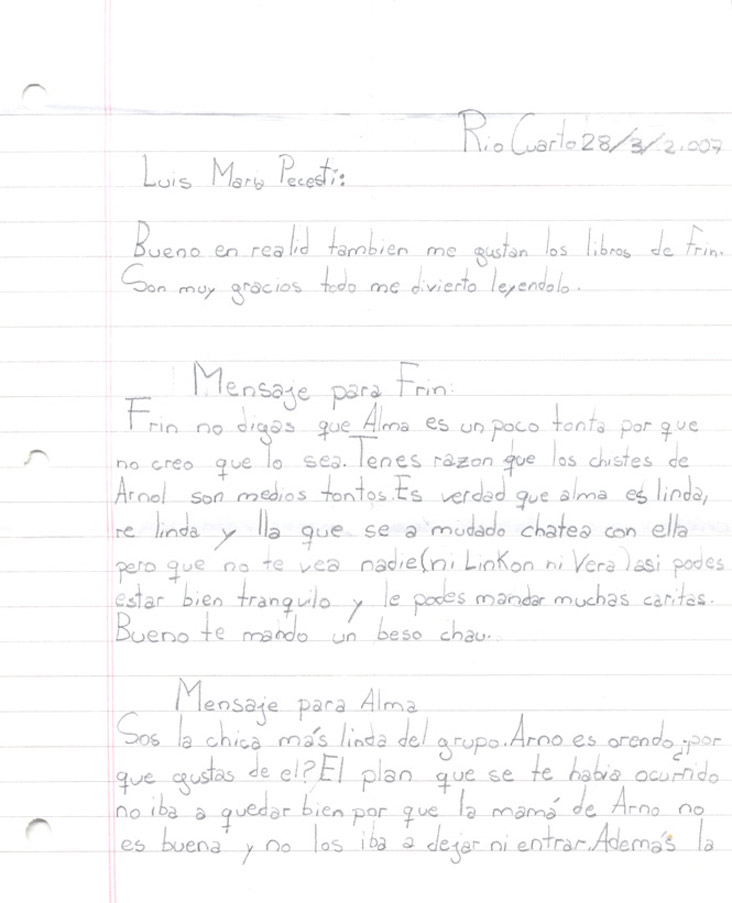 Rio Cuarto 28/3/2.007
Luis Maria Pecesti:
Bueno en realid tambien me gustan los libros de Frin.
Son muy gracios todo me divierto leyendolo.
Mensaje para Frin:
Frin no digas que Alma es un poco tonta por que
no creo que lo sea. Tenes razon que los chistes de
Arnol son medios tontos. Es verdad que alma es linda,
re linda y lla que se a mudado chatea con ella
pero que no te vea nadie (ni Linkon ni Vera) asi podes
estar bien tranquilo y le podes mandar muchas caritas.
Bueno te mando un beso chau.
Mensaje para Alma
Sos la chica más linda del grupo. Arno es orendo ¿por
que gustas de el? El plan que se te habia ocurrido
no iba a quedar bien por que la mamá de Arno no
es buena y no los iba a dejar ni entrar. Además la